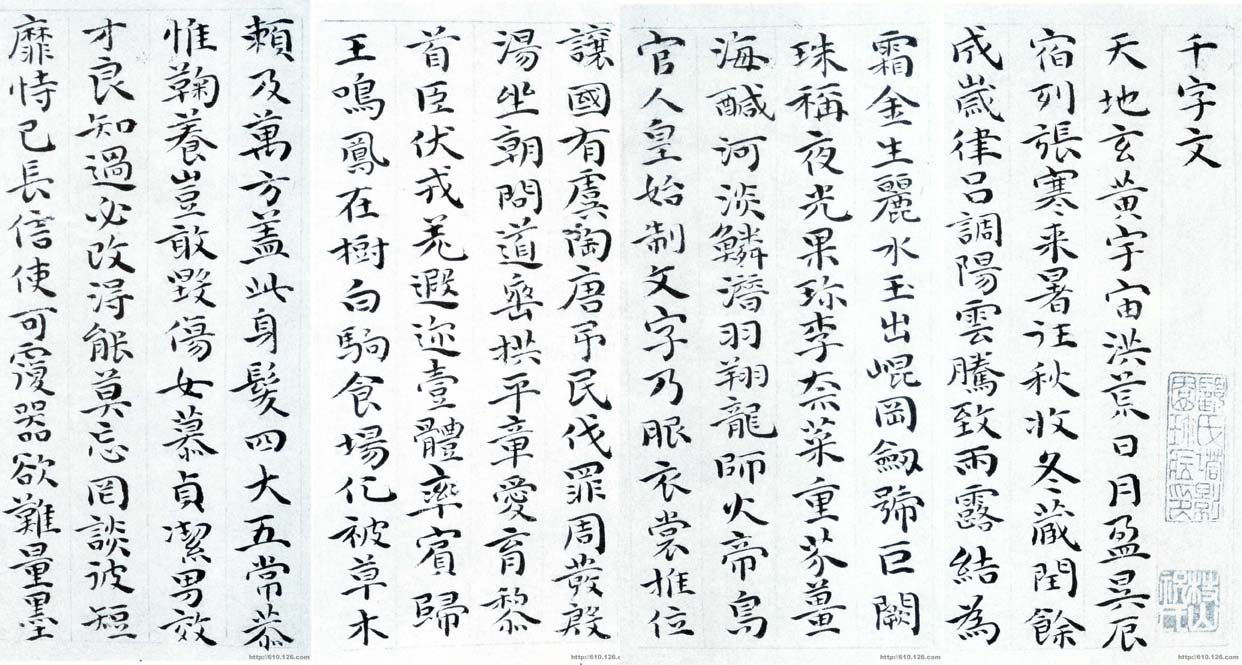 千字文
天地玄黄宇宙洪荒日月盈昃辰
宿列張寒来暑往秋收冬藏閏餘
成歲律吕調陽雲騰致雨露結為
霜金生麗水玉出崐岡劔號巨闕
珠稱夜光果珍李柰菜重芥薑
海醎河淡鱗潛羽翔龍師火帝鳥
官人皇始制文字乃服衣裳推位
讓國有虞陶唐弔民伐罪周發殷
湯坐朝問道垂拱平章愛育黎
首臣伏戎羌遐迩壹體率賓歸
王鳴鳳在樹白駒食場化被草木
賴及萬方盖此身髮四大五常恭
惟鞠養豈敢毀傷女慕貞潔男效
才良知過必改得能莫忘罔談彼短
靡恃己長信使可覆器欲難量墨
http://610.126.com
http://610.126.com
http://610.126.com
http://610.126.com